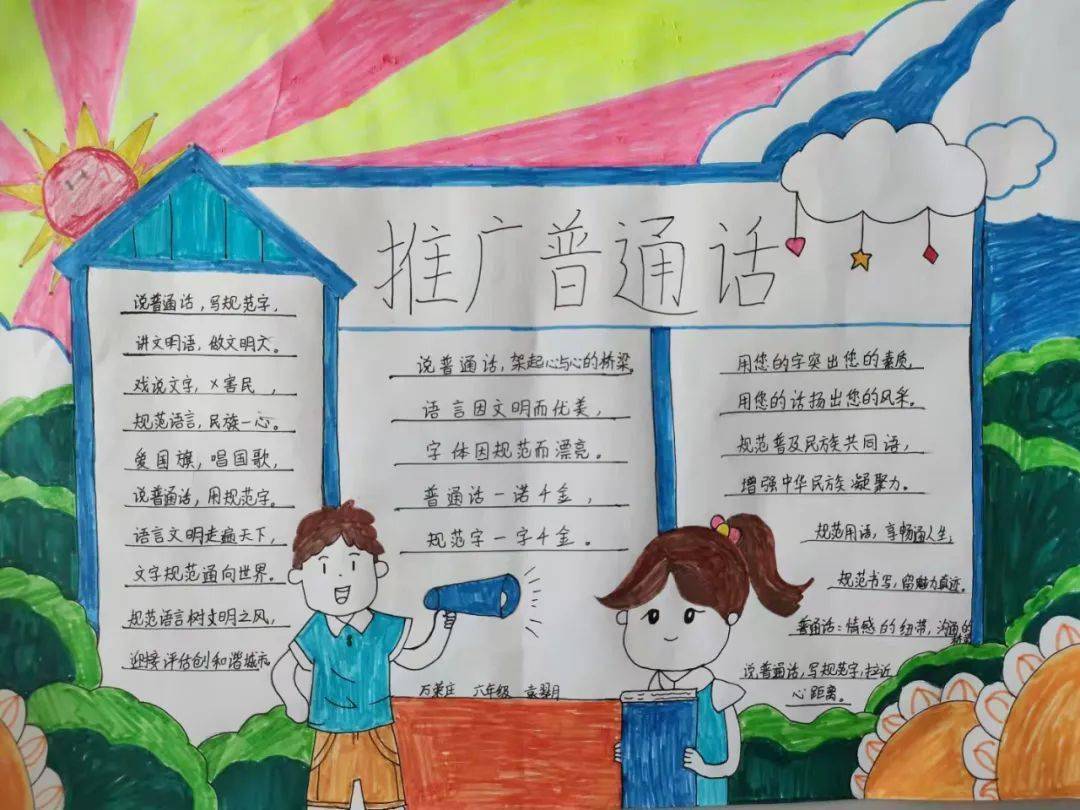 推广普通话
说普通话，写规范字，
讲文明语，做文明人。
戏说文字，×害民，
规范语言，民族一心。
爱国旗，唱国歌，
说普通话，用规范字。
语言文明走遍天下，
文字规范通向世界。
规范语言树文明之风，
迎接评估创和谐城市。
说普通话，架起心与心的桥梁。
语言因文明而优美，
字体因规范而漂亮。
普通话一诺千金，
规范字一字千金。
用您的字突出您的素质，
用您的话扬出您的风采。
规范普及民族共同语，
增强中华民族凝聚力。
规范用语，享畅通人生，
规范书写，留魅力真迹。
普通话：情感的纽带，沟通的
说普通话，写规范字，拉近
心距离。
万荣庄 六年级 袁翌月